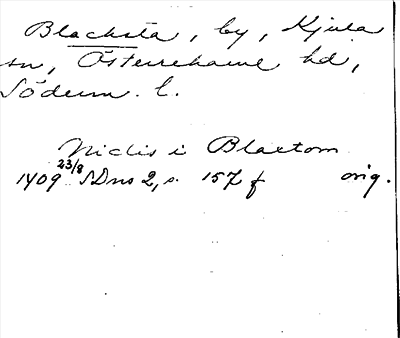 Blacksta, by, Kjula
sn, Österrekarne hd,
Söderm. l.
Niclis i Blaxtom
1409 23/8 SDns 2, s. 157 f orig.